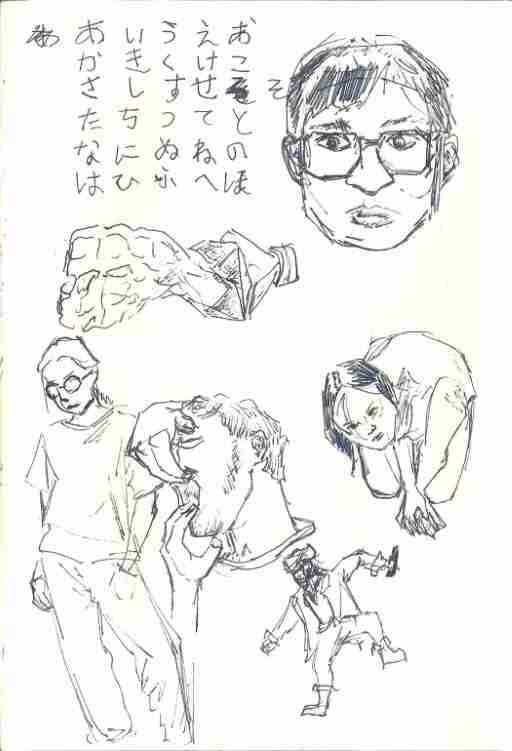 そ
おことのほ
えけせてねへ
うくすつぬふ
いきしちにひ
あかさたなは